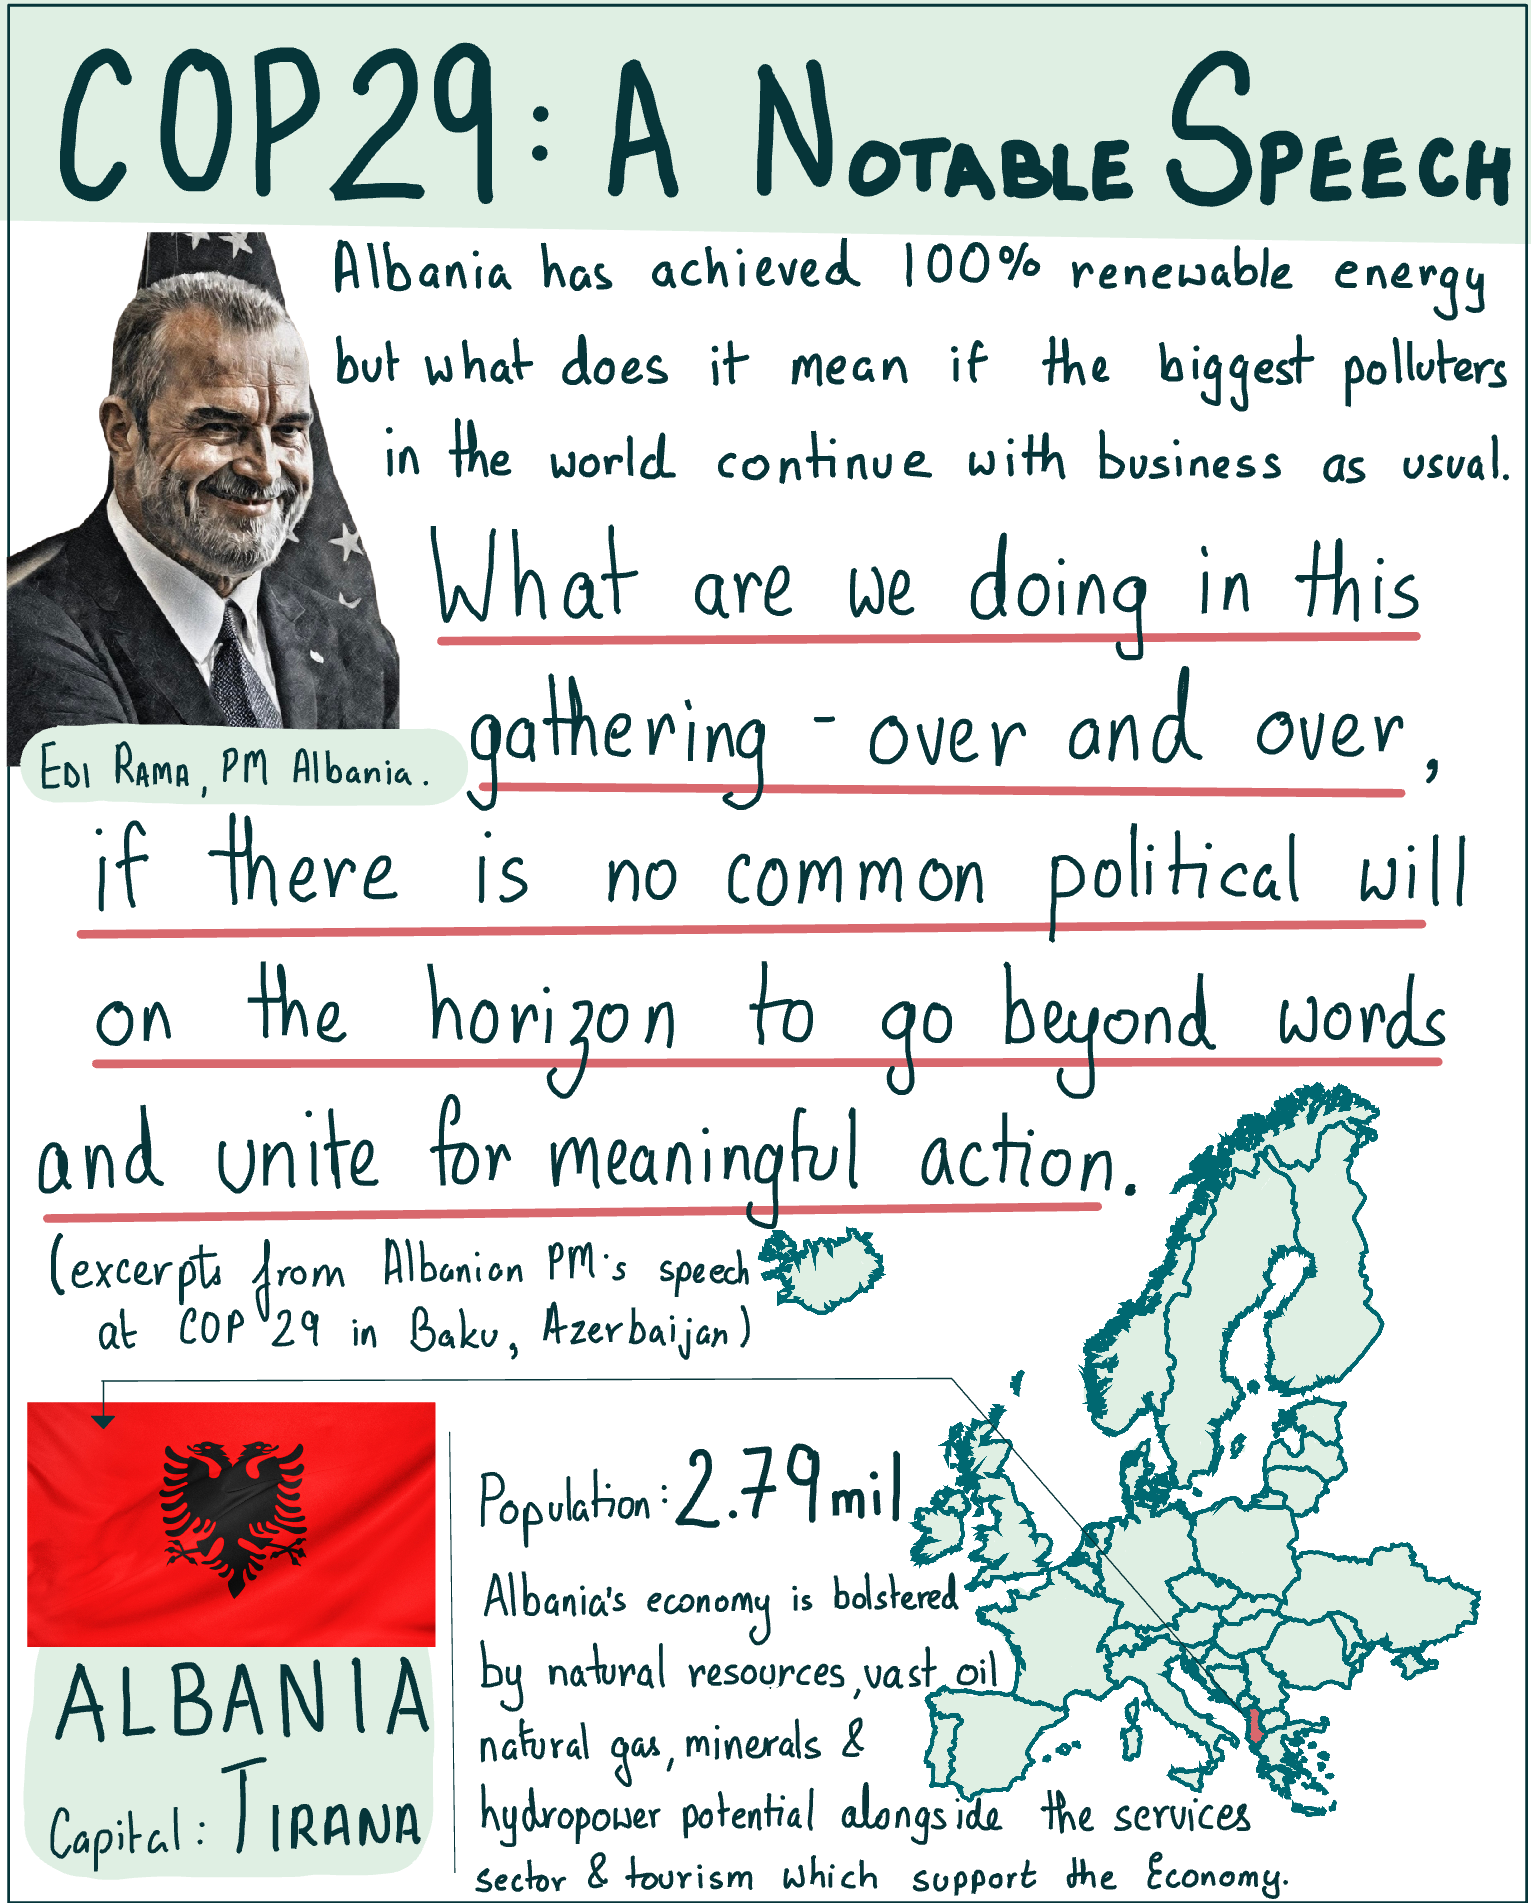 COP29: A NOTABLE SPEECH
Albania has achieved 100% renewable energy
but what does it mean if the biggest polluters
in the world continue with business as usual.
What are we doing in this
gathering - over and over,
EDI RAMA, PM Albania.
if there is no common political will
on the horizon to go beyond words
and unite for meaningful action.
(excerpts from Albanian PM's speech
at COP 29 in Baku, Azerbaijan)
ALBANIA
Capital: TIRANA
Population: 2.79 mil
Albania's economy is bolstered
by natural resources, vast oil
natural gas, minerals &
hydropower potential alongside the services
sector & tourism which support the Economy.